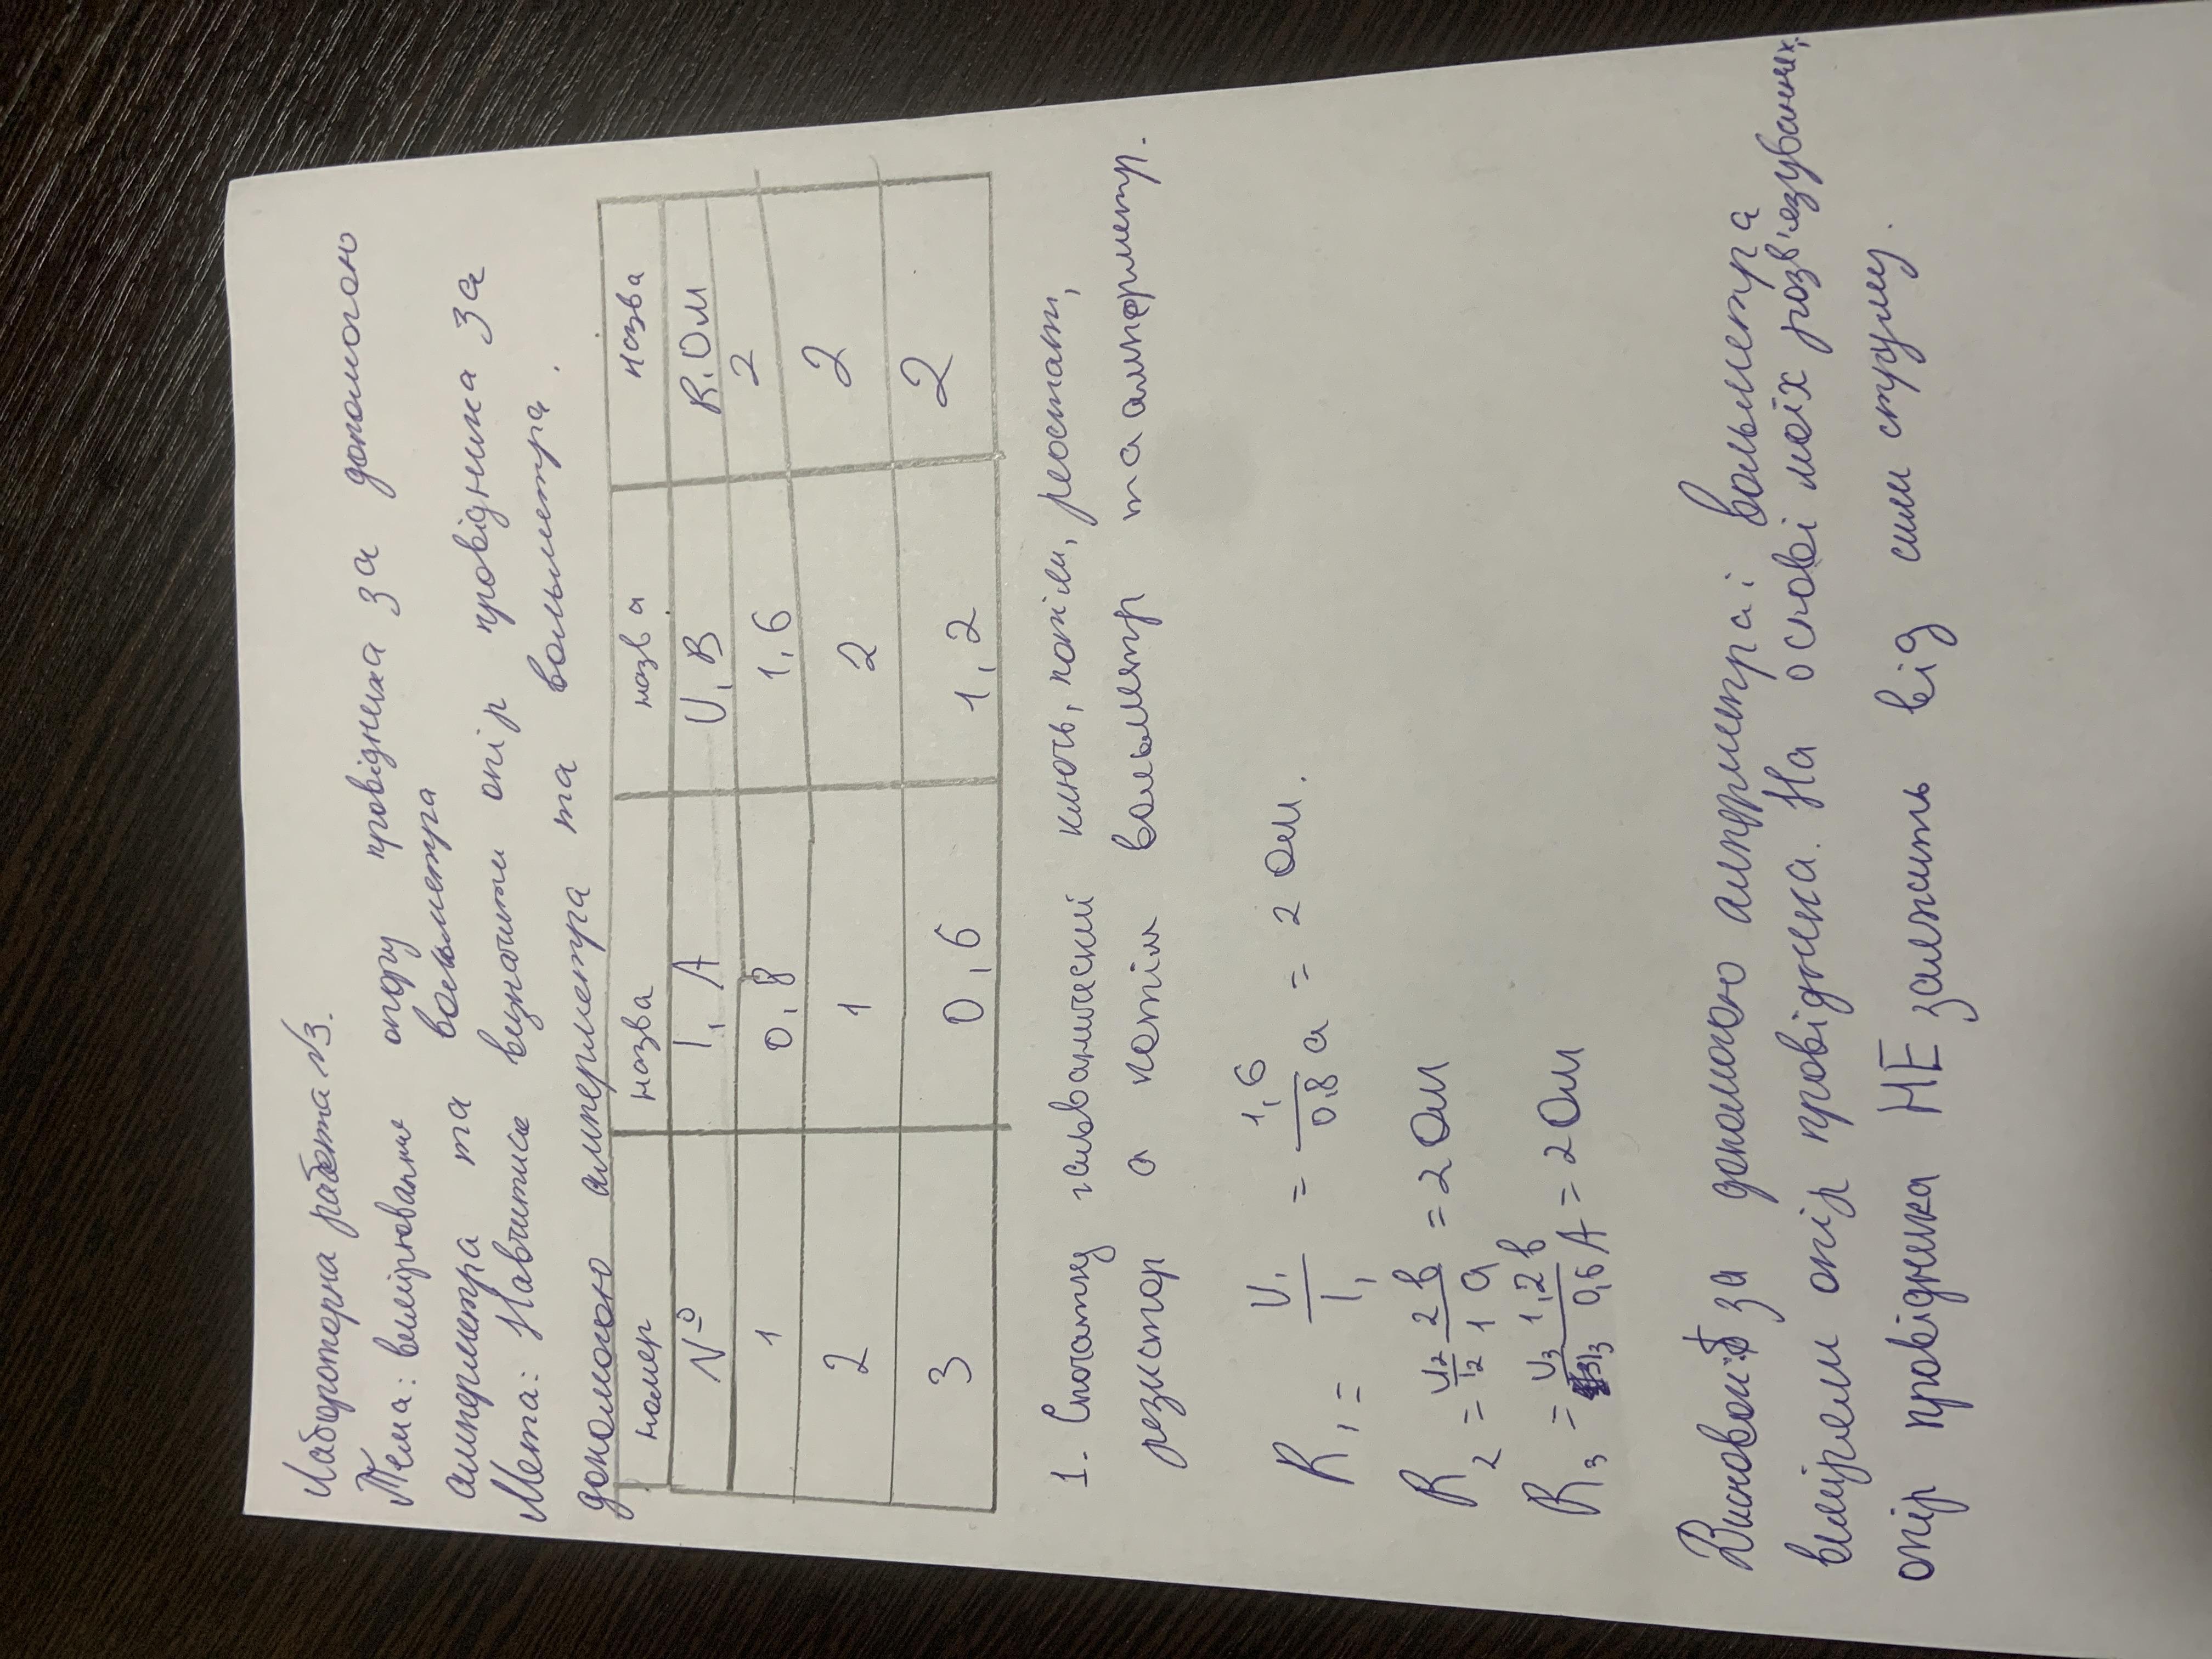 Лабороторна работа №3.
Тема: вимірювання опору провідника за допомогою
амперметра та вольметра
Мета: Навчитися визначити опір провідника за
допомогою амперметра та вольметра.
номер назва назва назва
№ I, A U, B R, Ом
1 0,8 1,6 2
2 1 2 2
3 0,6 1,2 2
1. Спочатку гальванический ключь, потім, реостат,
резистор а потім вольметр та амперметр.
R1 = U1/I1 = 1,6/0,8 а = 2 Ом.
R2 = U2/I2 2 в/1 а = 2 Ом
R3 = U3/I3 1,2 в/0,6 А = 2 Ом
Висновок: за допомогою амперметра і вольметра
виміряли опір провідника. На основі моїх розв'язуваннях,
опір провідника НЕ залежить від сили струму.